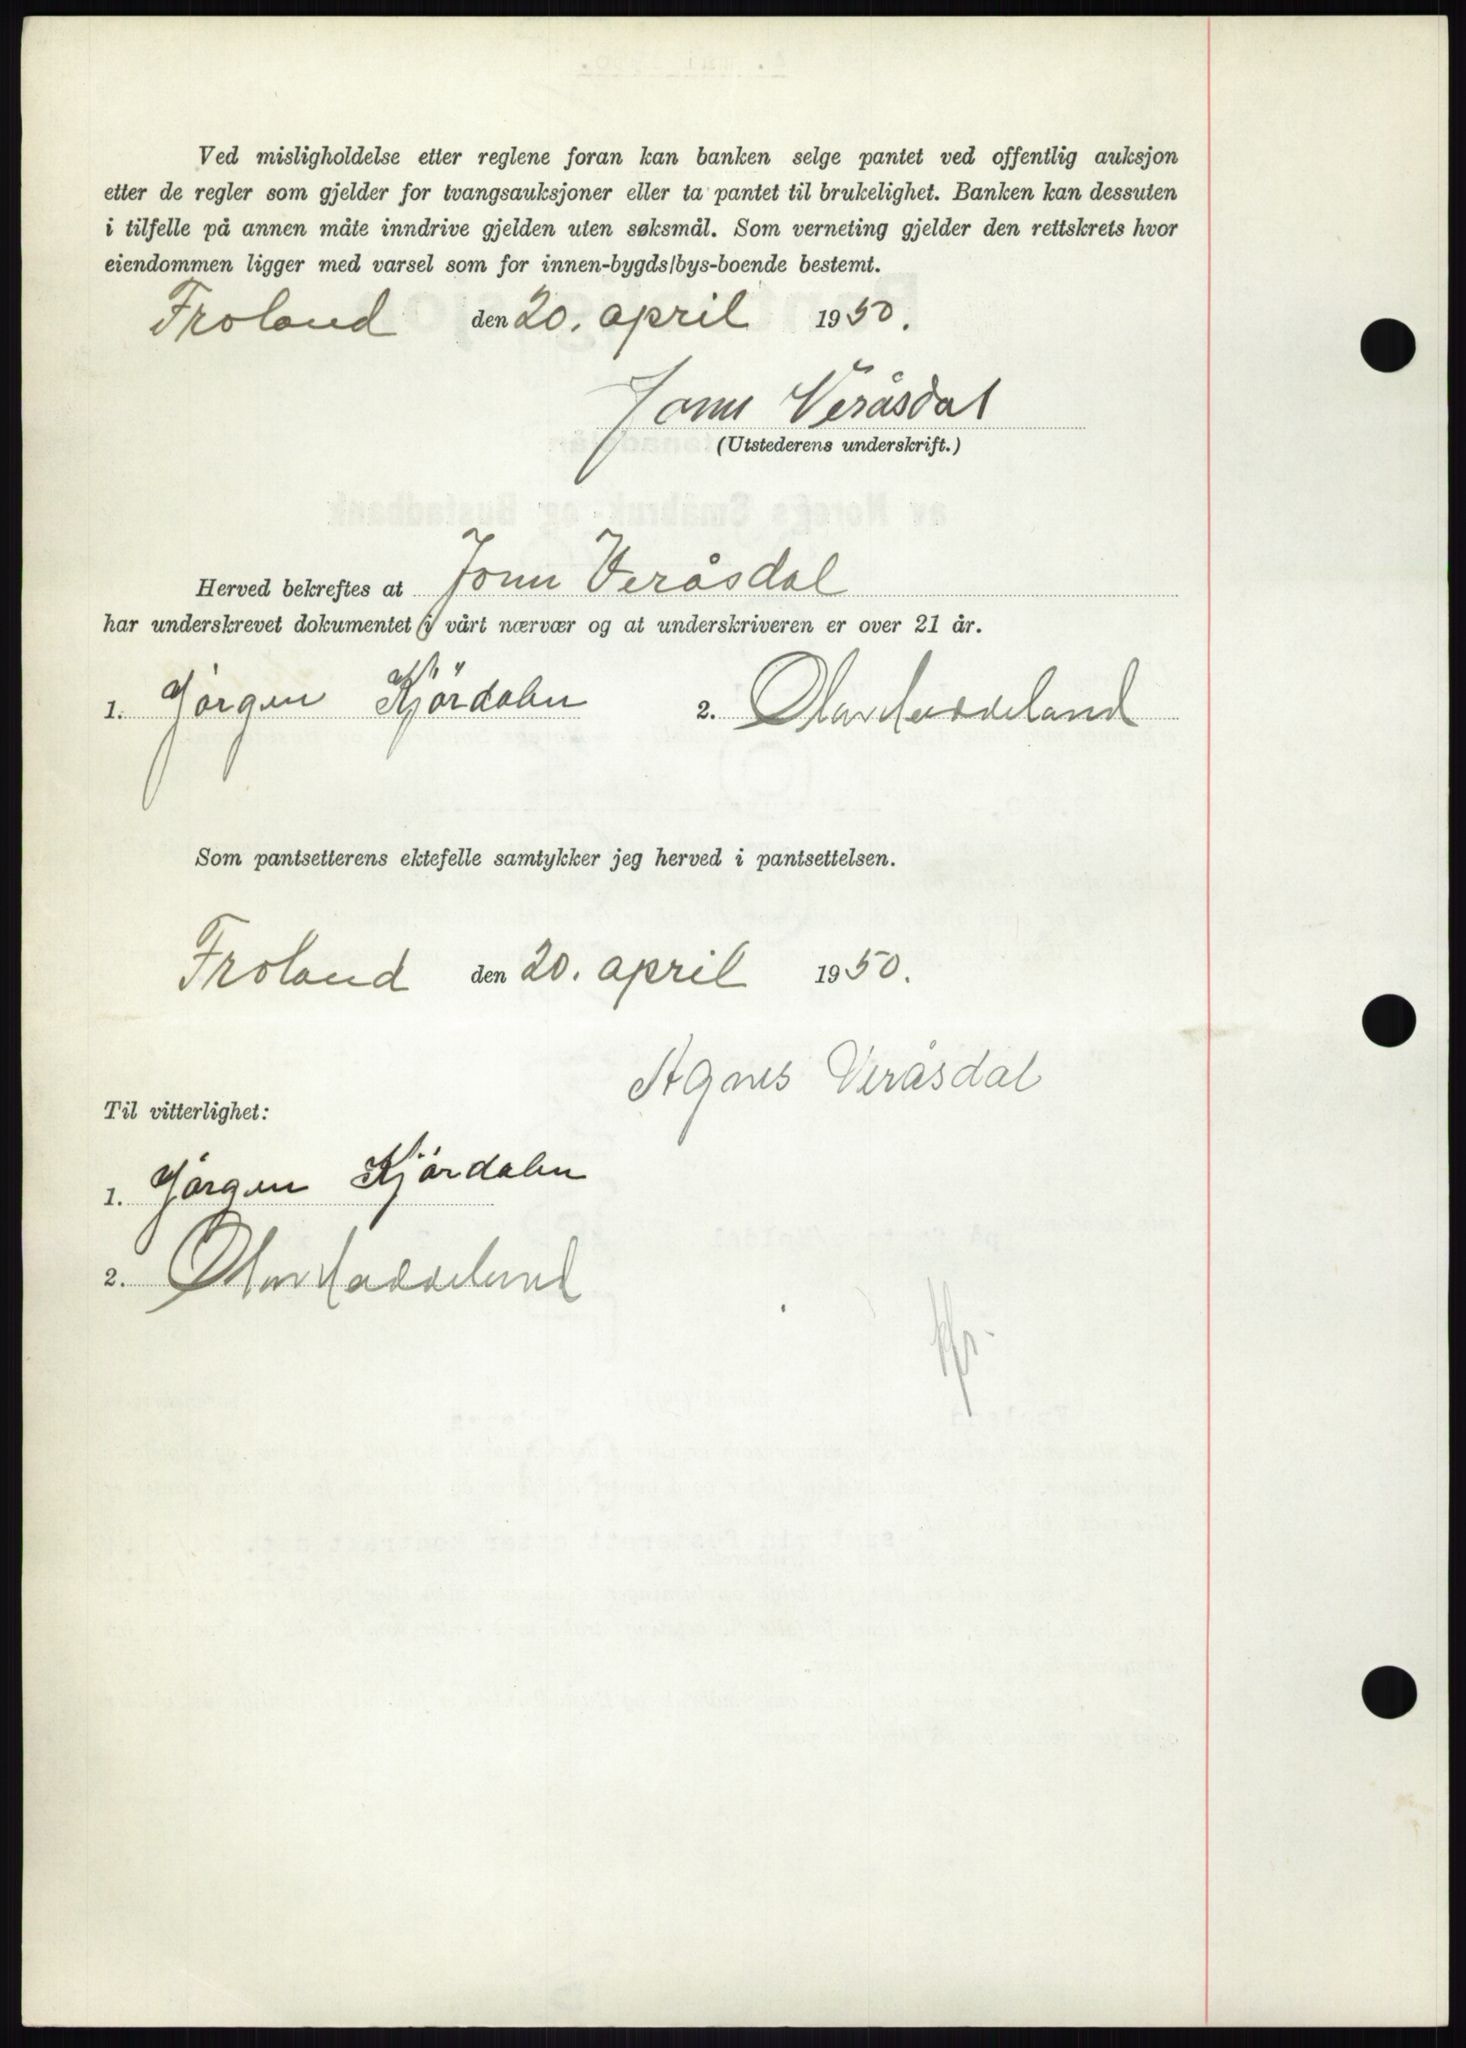 Ved misligholdelse etter reglene foran kan banken selge pantet ved offentlig auksjon
etter de regler som gjelder for tvangsauksjoner eller ta pantet til brukelighet. Banken kan dessuten
i tilfelle på annen måte inndrive gjelden uten søksmål. Som verneting gjelder den rettskrets hvor
eiendommen ligger med varsel som for innen-bygds/bys-boende bestemt.
Froland den 20. april 1950.
Jonn Veråsdal
(Utstederens underskrift.)
Herved bekreftes at Jonn Veråsdal
har underskrevet dokumentet i vårt nærvær og at underskriveren er over 21 år.
1. Jørgen Kjördalen 2. Olav Haddeland
Som pantsetterens ektefelle samtykker jeg herved i pantsettelsen.
Froland den 20. april 1950.
Agnes Veråsdal
Til vitterlighet:
1. Jørgen Kjørdalen
2. Olav Haddeland